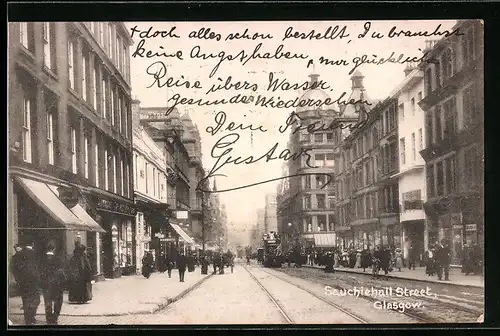 + doch alles schon bestellt, Du brauchst
keine Angst haben, nur glückliche
Reise übers Wasser.
gesundes Wiedersehen
Dein Freund
Gustav
Sauchiehall Street,
Glasgow.